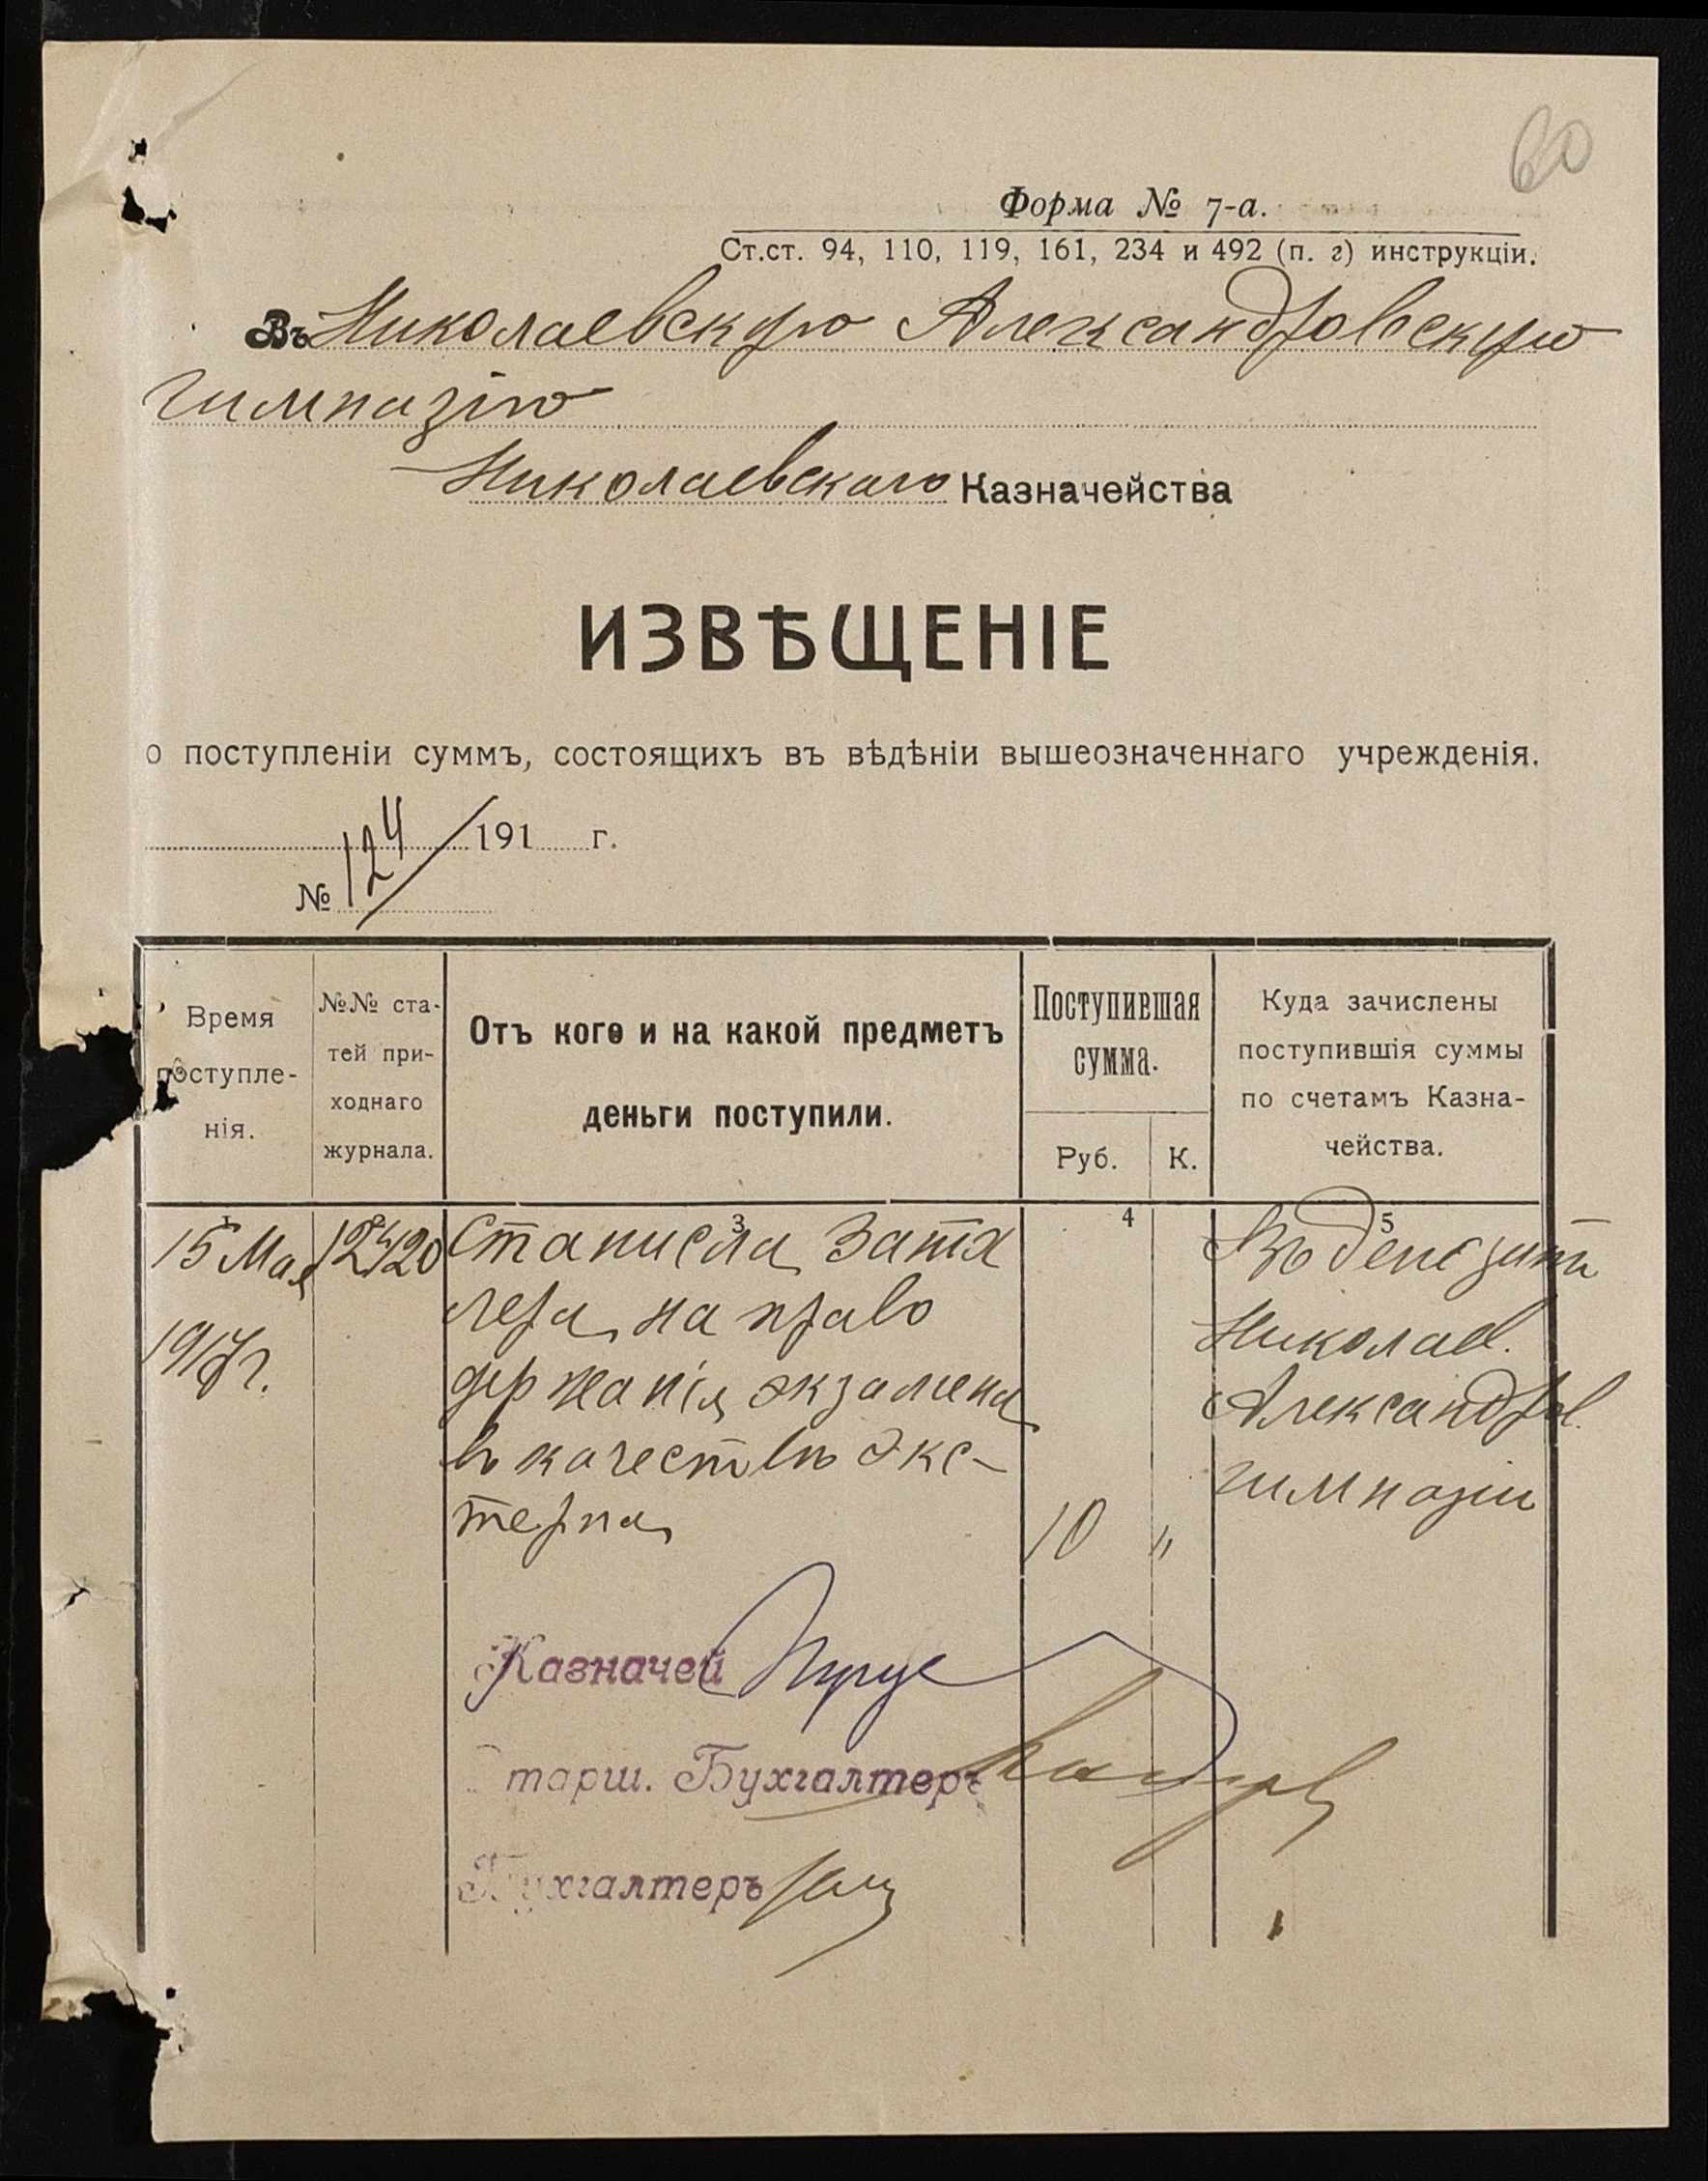 60
Форма № 7-а.
Ст.ст. 94, 110, 119, 161, 234 и 492 (п. г) инструкціи.
Въ Николаевскую Александровскую
гимназію
Николаевскаго Казначейства
ИЗВѢЩЕНІЕ
о поступленіи суммъ, состоящихъ въ вѣдѣніи вышеозначеннаго учрежденія.
191 г.
№ 124
Время
поступле-
нія.
№№ ста-
тей при-
ходнаго
журнала.
Отъ кого и на какой предметъ
деньги поступили.
Поступившая
сумма.
Руб. К.
Куда зачислены
поступившія суммы
по счетамъ Казна-
чейства.
1 2 3 4 5
15 Мая
1917 г.
Станисла Затя
лера на право
держанія экзамена
въ качествѣ экс-
терна
10 "
Въ депозиты
Николаев.
Александров.
гимназіи
Казначей
Старш. Бухгалтеръ
Бухгалтеръ